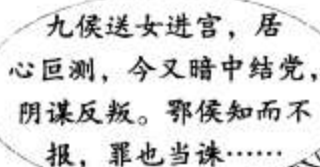 九侯送女进宫，居
心叵测，今又暗中结党，
阴谋反叛。鄂侯知而不
报，罪也当诛……